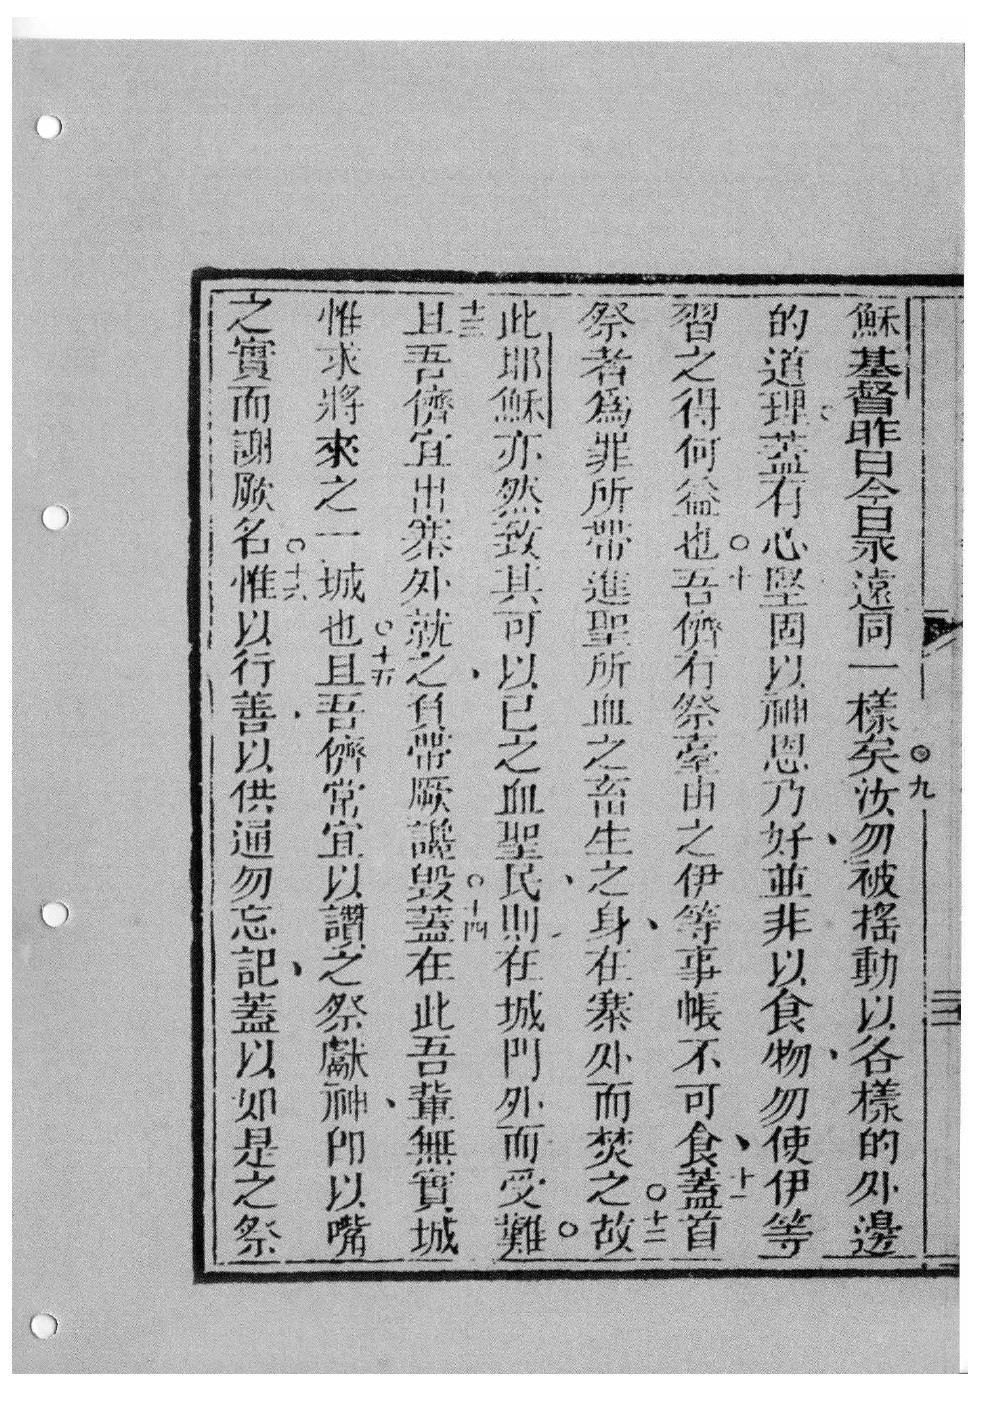 穌基督昨日今日永遠同一樣矣○九汝勿被搖動以各樣的外邊
的道理蓋有心堅固以神恩乃好並非以食物勿使伊等
習之得何益也○十吾儕有祭臺由之伊等事帳不可食十一蓋首
祭者爲罪所帶進聖所血之畜生之身在寨外而焚之○十二故
此耶穌亦然致其可以己之血聖民則在城門外而受難○
十三且吾儕宜出寨外就之負帶厥讒毀○十四蓋在此吾輩無實城
惟求將來之一城也○十五且吾儕常宜以讚美之祭獻神卽以嘴
之實而謝厥名○十六惟以行善以供通勿忘記蓋以如是之祭